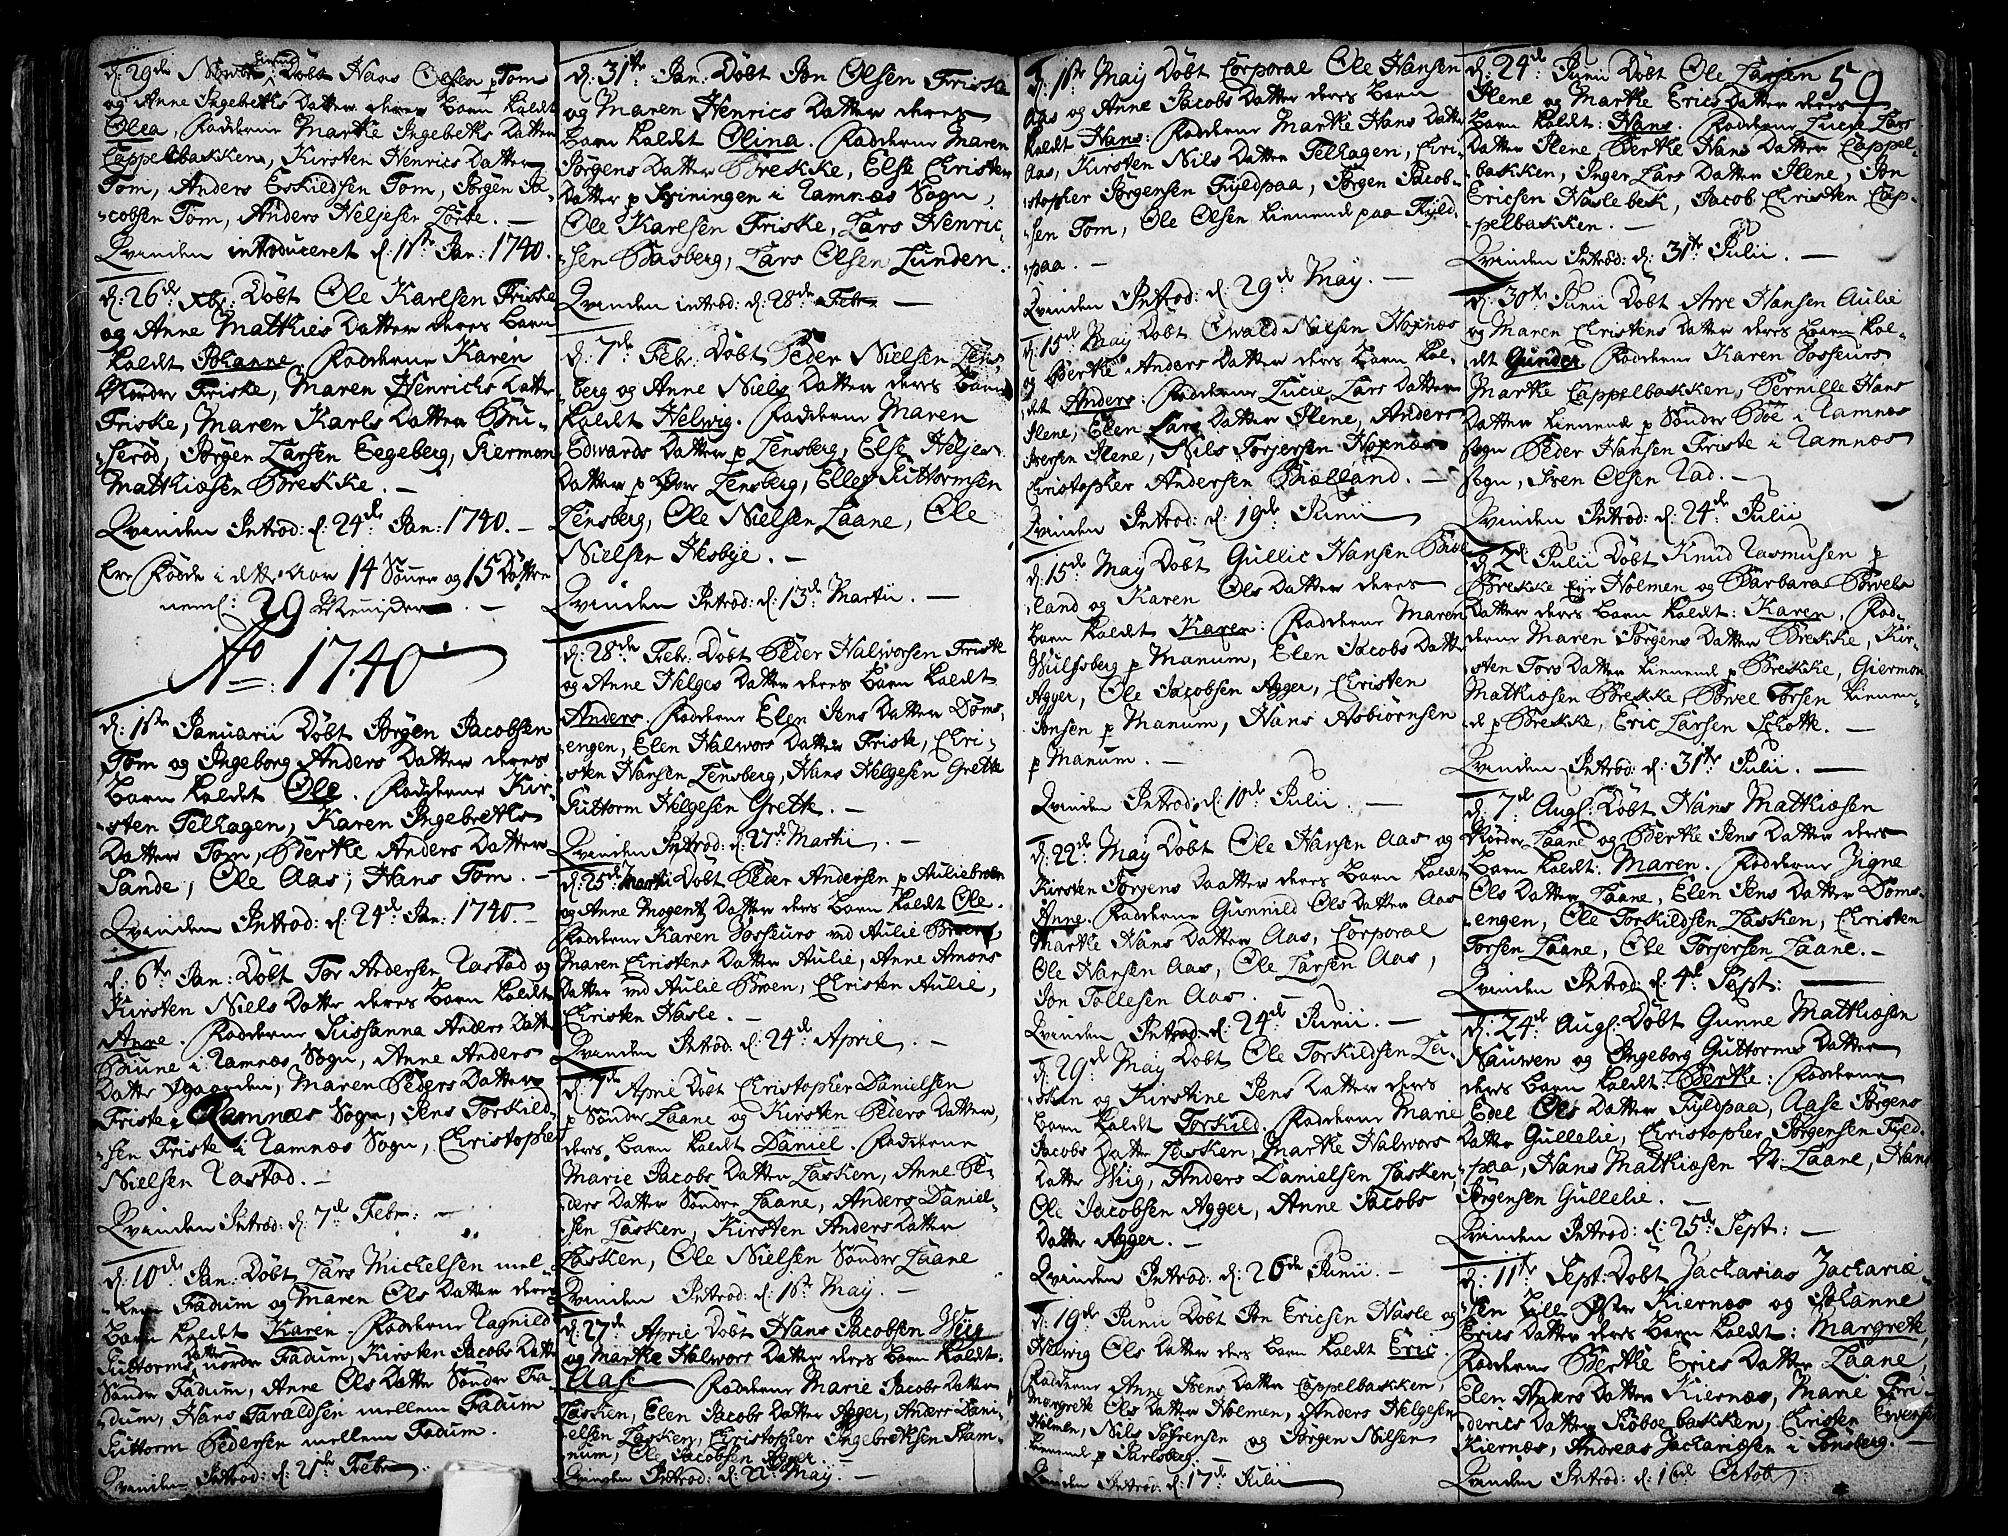 d: 29de Novbr: Döbt Hans Olsen p Tom
og Anne Ingebreths Datter deres Barn kaldt
Olea, Fadderne Marthe Ingebreths Datter
Cappelbakken, Kirsten Henrics Datter
Tom, Anders Eskildsen Tom, Jörgen Ja-
cobsen Tom, Anders Heljesen
Qvinden introduceret d: 1ste Jan: 1740.
d: 26de Xbr: Döbt Ole Karlsen Friske
og Anne Matthies Datter deres Barn
kaldt Johanne Fadderne Karen
Nordre Friske, Maren Henrichs Datter
Friske, Maren Karls Datter Bru-
seröd, Jörgen Larsen Eegeberg, Giermon
Matthiæsen Brekke. —
Qvinden Introd: d: 24de Jan: 1740. —
Ere födde i dette Aar 14 Sönner og 15 Döttre
neml: 29 Mennisker —
Ao: 1740
d: 1ste Januarii Döbt Jörgen Jacobsen
Tom og Ingeborg Anders Datter deres
Barn kaldt Ole. Fadderne Kir-
sten Telhagen, Karen Ingebreths
Datter Tom, Berthe Anders Datter
Sande, Ole Aas, Hans Tom. —
Qvinden Introd: d: 24de Jan: 1740. —
d: 6te Jan: Döbt Tor Andersen Rastad og
Kirsten Niels Datter deres Barn kaldt
Anne. Fadderne Sussanna Anders Datter
Brune i Ramnæs Sogn, Anne Anders
Datter Ögaarden, Maren Peders Datter
Friste i Ramnæs Sogn, Jens Torkild-
sen Friste i Ramnæs Sogn, Christopher
Nielsen Rastad. —
Qvinden Introd: d: 7de Febr: —
d: 10de Jan: Döbt Lars Michelsen mel-
lem Fadum og Maren Ols Datter deres
Barn kaldt Karen. Fadderne Ragnild
Guttorms Datter nordre Fadum, Kirsten Jacobs Datter
Sönder Fadum, Anne Ols Datter Sönder Fa-
dum, Hans Taraldsen mellem Fadum
Guttorm Pedersen mellem Fadum.
Qvinden Introd: d: 21de Febr:
d: 31te Jan: Döbt Jon Olsen Friske
og Maren Henrics Datter deres
Barn kaldt Olina. Fadderne Maren
Jörgens Datter Brekke, Else Christen
Datter p Sviningen i Ramnæs Sogn,
Ole Karlsen Friske, Lars Henric-
sen Basberg, Lars Olsen Lunden.
Qvinden introd: d: 28de Febr —
d: 7de Febr: Döbt Peder Nielsen Lens-
berg og Anne Niels Datter deres Barn
kaldt Helwig. Fadderne Maren
Edwards Datter p Lensberg, Else Heljes
Datter p Lensberg, Ellef Guttormsen
Lensberg, Ole Nielsen Laane, Ole
Nielsen Hesbye. —
Qvinden Introd: d: 13de Martii. —
d: 28de Febr: Döbt Peder Halworsen Friste
og Anne Helges Datter deres Barn kaldt
Anders. Fadderne Elen Jens Datter Döms-
engen, Elen Halwors Datter Friste, Chri-
sten Hansen Lensberg, Hans Helgesen Grette
Guttorm Helgesen Grette. —
Qvinden Introd: d: 27de Martii. —
d: 25de Martii Döbt Peder Andersen p Auliebroen
og Anne Mogens Datter deres Barn kaldt Ole.
Fadderne Karen Gosseurs ved Aulie Broen,
Maren Christens Datter Aulie, Anne Amons
Datter ved Aulie Broen, Christen Aulie,
Christen Hasle. —
Qvinden Introd: d: 24de April. —
d: 7de April Döbt Christopher Danielsen
p Sönder Laane og Kirsten Peders Datter,
deres Barn kaldt Daniel. Fadderne
Marie Jacobs Datter Lasken, Anne Pe-
ders Datter Sönder Laane, Anders Daniel-
sen Lasken, Kirsten Anders Datter
Lasken, Ole Nielsen Sönder Laane
Qvinden Introd: d: 1ste May. —
d: 27de April Döbt Hans Jacobsen Wiig
og Marthe Halwors Datter deres Barn kaldt
Aase Fadderne Marie Jacobs Datter
Lasken, Elen Jacobs Datter Agger, Anders Dani-
elsen Lasken, Christopher Ingebrethsen Ram-
num, Ole Jacobsen Agger.
Qvinden Introd: d: 22de May. —
d: 1ste May Döbt Corporal Ole Hansen
Aas og Anne Jacobs Datter deres Barn
kaldt Hans. Fadderne Marthe Hans Datter
Aas, Kirsten Nils Datter Telhagen, Chri-
stopher Jörgensen Fyldpaa, Jörgen Jacob-
sen Tom, Ole Olsen tienende paa Fyld-
paa. —
Qvinden Introd: d: 29de May. —
d: 15de May Döbt Ewald Nielsen Hoxnæs
og Berthe Anders Datter deres Barn kal-
det Anders: Fadderne Lucie Lars Datter
Ilene, Elen Lars Datter Ilene, Anders
Iversen Ilene, Nils Torjersen Hoxnæs
Christopher Andersen Biælland. —
Qvinden Introd: d: 19de Junii
d: 15de May Döbt Gullic Hansen Biæl-
land og Karen Ols Datter deres
Barn kaldt Karen: Fadderne Maren
Wulfsberg p Manum, Elen Jacobs Datter
Agger, Ole Jacobsen Agger, Christen
Jonsen p Manum, Hans Asbiörnsen
p Manum. —
Qvinden Introd: d: 10de Julii. —
d: 22de May Döbt Ole Hansen Aas og
Kirsten Jörgens Daatter deres Barn kaldt
Anne. Fadderne Gunnild Ols Datter Aas
Marthe Hans Datter Aas, Corporal
Ole Hansen Aas, Ole Larsen Aas,
Jon Tollesen Aas. —
Qvinden Introd: d: 24de Junii. —
d: 29de May Döbt Ole Torkildsen La-
sken og Kirstine Jens Datter deres
Barn kaldt Torkild. Fadderne Marie
Jacobs Datter Lasken, Marthe Halwors
Datter Wiig, Anders Danielsen Lasken,
Ole Jacobsen Agger, Anne Jacobs
Datter Agger. —
Qvinden Introd: d: 26de Junii. —
d: 19de Junii Döbt Jon Ericsen Hasle og
Helwig Ols Datter deres Barn kaldt Eric.
Fadderne Anne Ivens Datter Cappelbakken,
Margrete Ols Datter Holmen, Anders Helgesen
Holmen, Nils Sörensen og Jörgen Nilsen
tienende p Jarlsberg. —
Qvinden Introd: d: 17de Julii
59
d: 24de Junii Döbt Ole Larsen
Ilene og Marthe Erics Datter deres
Barn kaldt: Hans. Fadderne Lucie Lars
Datter Ilene, Berthe Hans Datter Cappel-
bakken, Inger Lars Datter Ilene, Jon
Ericsen Haslebek, Jacob Christen Cap-
pelbakken. —
Qvinden Introd: d: 31te Julii. —
d: 30te Junii Döbt Arre Hansen Aulie
og Maren Christens Datter deres Barn kal-
dt Gunder. Fadderne Karen Gosseurs
Marthe Cappelbakken, Pernille Hans
Datter tienende p Sönder Böe i Ramnæs
Sogn Peder Hansen Friste i Ramnæs
Sogn, Iven Olsen Rad. —
Qvinden Introd: d: 24de Julii
d: 2de Julii Döbt Knud Rasmusen p
Brekke Eye Holmen og Barbara Brvels
Datter deres Barn kaldt: Karen, Fad-
derne Maren Jörgens Datter Brekke, Kir-
sten Tors Datter tienende p Brekke, Giermon
Matthiæsen Brekke Torsen tienen-
de p Brekke, Eric Larsen Schotte. —
Qvinden Introd: d: 31te Julii. —
d: 7de Aug: Döbt Hans Matthiæsen
Nordre Laane og Berthe Jens Datter deres
Barn kaldt: Maren. Fadderne Zigne
Ols Datter Laane, Elen Jens Datter Döms-
engen, Ole Torkildsen Lasken, Christen
Torsen Laane, Ole Torjersen Laane. —
Qvinden Introd: d: 4de Sept: —
d: 24de Aug: Döbt Gunne Matthiæsen
Nauwen og Ingeborg Guttorms Datter
deres Barn kaldt: Berthe: Fadderne
Edel Ols Datter Fyldpaa, Aase Jörgens
Datter Gullelie, Christopher Jörgensen Fyld-
paa, Hans Matthiæsen N: Laane, Hans
Jörgensen Gullelie. —
Qvinden Introd: d: 25de Sept: —
d: 11te Sept: Döbt Zacharias Zachariæ-
sen Öster Kiernæs og Johanne
Erics Datter deres Barn kaldt: Margrete,
Fadderne Berthe Erics Datter Laane,
Elen Anders Datter Kiernæs, Marie Fri-
derics Datter Kioboe bakken, Christen Evensen
Kiernæs, Andreas Zachariæsen i Tönsberg. —
Qvinden Introd: d: 16de Octob: